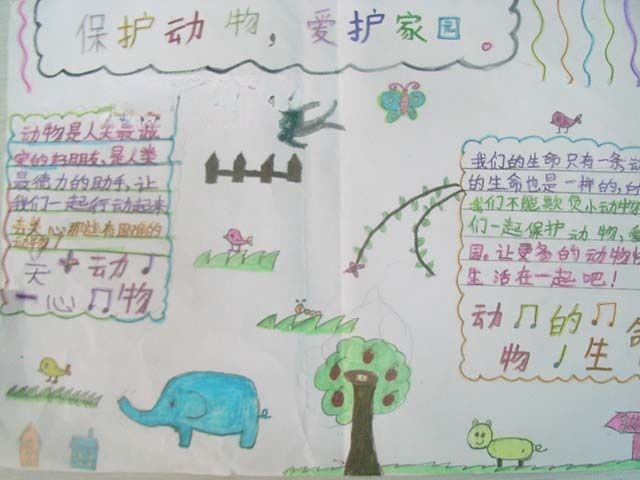 保护动物，爱护家园。
动物是人类最诚
实的好朋友，是人类
最得力的助手，让
我们一起行动起来
去关心那些有困难的
动物！
关动
一心物
我们的生命只有一条，动
的生命也是一样的，
我们不能欺负小动物
们一起保护动物，爱
园。让更多的动物
生活在一起吧！
动的
物生命